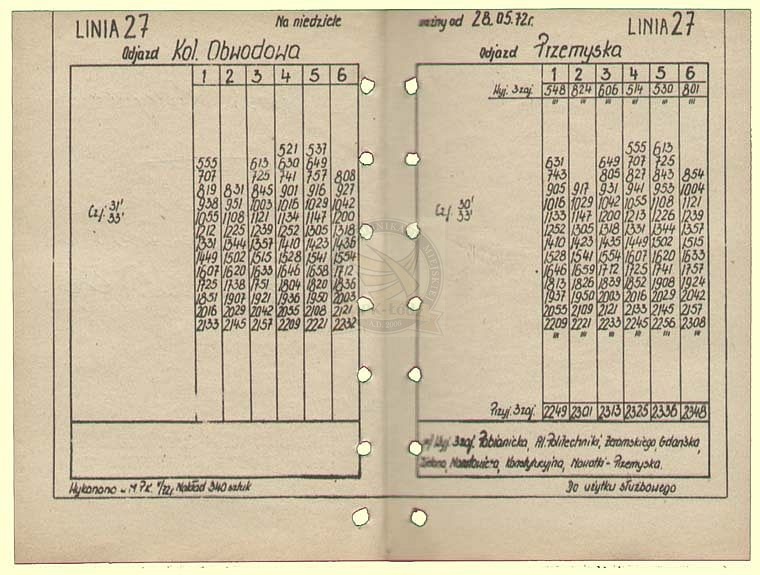 LINIA 27 Na niedziele
Odjazd Kol. Obwodowa
1 2 3 4 5 6
521 537
555 613 630 649
707 725 741 757 808
819 831 845 901 916 927
938 951 1003 1016 1029 1042
1055 1108 1121 1134 1147 1200
1212 1225 1239 1252 1305 1318
1331 1344 1357 1410 1423 1436
1449 1502 1515 1528 1541 1554
1607 1620 1633 1646 1658 1712
1725 1738 1751 1804 1820 1836
1851 1907 1921 1936 1950 2003
2016 2029 2042 2055 2108 2121
2133 2145 2157 2209 2221 2232
Czj. 31'
33'
Wykonano w M.P.K. Nakład 340 sztuk
ważny od 28.05.72r. LINIA 27
Odjazd Przemyska
1 2 3 4 5 6
Wyj. z zaj. 548 824 606 514 530 801
555 613
631 649 707 725
743 805 827 843 854
905 917 931 941 953 1004
1016 1029 1042 1055 1108 1121
1133 1147 1200 1213 1226 1239
1252 1305 1318 1331 1344 1357
1410 1423 1435 1449 1502 1515
1528 1541 1554 1607 1620 1633
1646 1659 1712 1725 1741 1757
1813 1826 1839 1852 1908 1924
1937 1950 2003 2016 2029 2042
2055 2109 2121 2133 2145 2157
2209 2221 2233 2245 2256 2308
Czj. 30'
33'
Przyj. z zaj. 2249 2301 2313 2325 2336 2348
Wyj. z zaj. Pabianicka, Al. Politechniki, Żeromskiego, Gdańska,
Zielona, Narutowicza, Konstytucyjna, Nowotki - Przemyska.
Do użytku służbowego